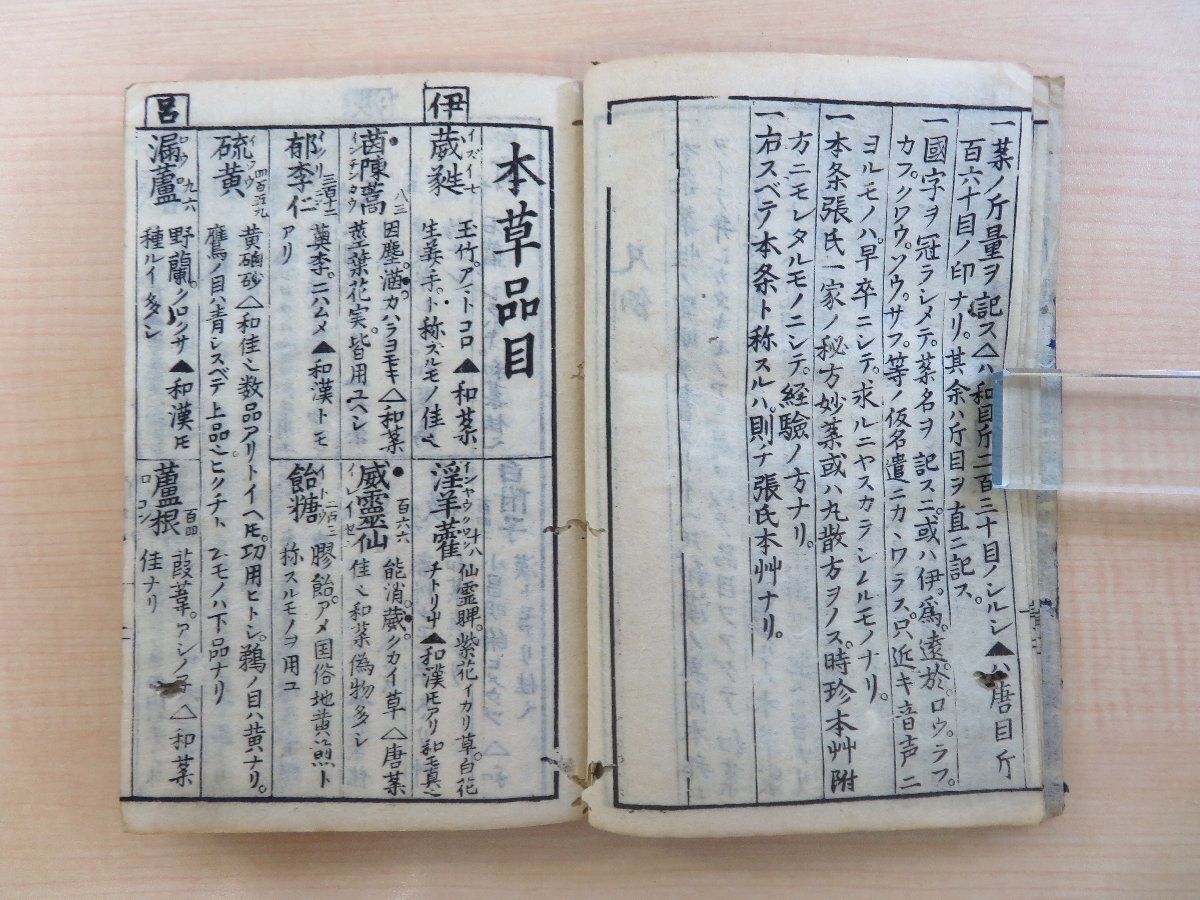 一薬ノ斤量ヲ記ス△ハ和目斤二百三十目ノシルシ▲ハ唐目斤
百六十目ノ印ナリ。其余ハ斤目ヲ直ニ記ス。
一國字ヲ冠ラシメテ。薬名ヲ記スニ。或ハ伊。爲。遠。於。ロウ。ラフ。
カフ。クワウ。ソウ。サフ。等ノ仮名遣ニカヽワラス。只近キ音声ニ
ヨルモノハ。早卒ニシテ。求ルニヤスカラシムルモノナリ。
一本条張氏一家ノ秘方妙薬或ハ丸散方ヲノス。時珍本艸附
方ニモレタルモノニシテ。経驗ノ方ナリ。
一右スベテ本条ト称スルハ。則チ張氏本艸ナリ。
本草品目
伊
葳蕤 イズイ 七 玉竹。アマトコロ ▲和薬
生姜手。ト称スルモノ佳也
淫羊藿 十八 仙霊脾。紫花イカリ草。白花
チトリ草 ▲和漢モアリ和モ真也
茵陳蒿 インチンカウ 八三 因塵。滷。カハラヨモキ △和薬
莖葉花実。皆用ユヘシ
威靈仙 イレイセン 百六六 能消。葳。クカイ草 △唐薬
佳也 和薬偽物多シ
郁李仁 三百十二 薁李。ニハムメ ▲和漢トモ
アリ
飴糖 イトウ 膠飴。アメ 国俗地黄煎ト
称スルモノヲ用ユ
硫黄 イワウ 四百五九 黄硇砂 △和佳也 数品アリトイヘモ。功用ヒトシ。鵜ノ目ハ黄ナリ。
鷹ノ目ハ青シスベテ上品也 ヒクチト云モノハ下品ナリ
呂
漏蘆 ロウロ 九六 野蘭。クロクサ ▲和漢モ
種ルイ多シ
蘆根 ロコン 百四 葭葦。アシノ子 △和薬
佳ナリ